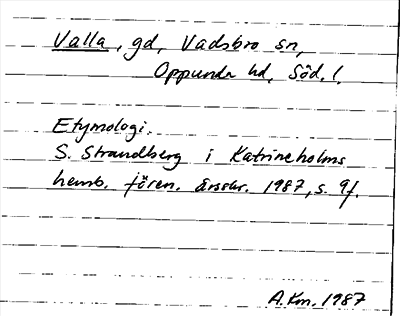 Valla, gd, Vadsbro sn,
Oppunda hd, Söd. l.
Etymologi.
S. Strandberg i Katrineholms
hemb. fören. årsskr. 1987, s. 9f.
A.Km. 1987